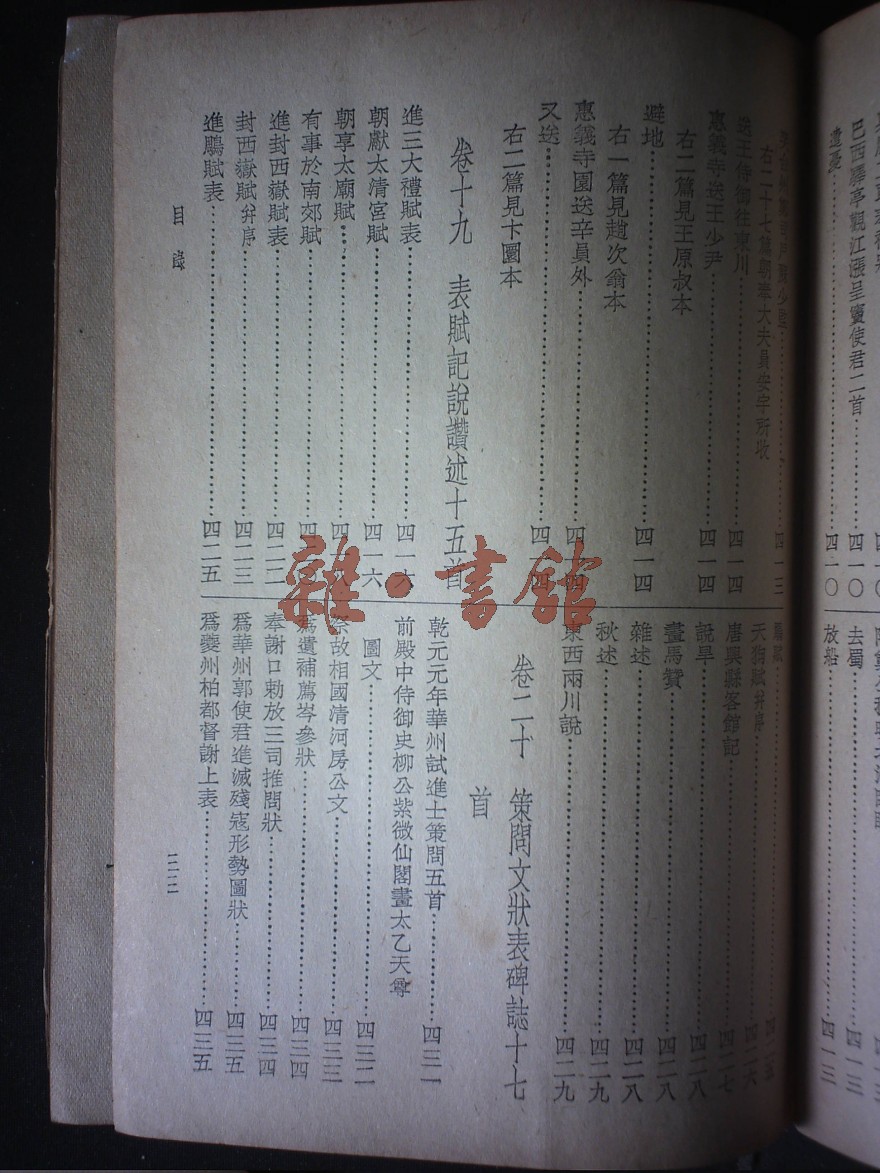 巴西驛亭觀江漲呈竇使君二首……四一〇
遣憂……四一〇
去蜀……四一三
放船……四一三
右二十七篇朝奉大夫員安宇所收
送王侍御往東川……四一四
惠義寺送王少尹……四一四
右二篇見王原叔本
避地……四一四
右一篇見趙次翁本
惠義寺園送辛員外……四一四
又送……四一四
右二篇見卞圜本
卷十九 表賦記說讚述十五首
進三大禮賦表……四一六
朝獻太清宮賦……四一六
朝享太廟賦……四一八
有事於南郊賦……四
進封西嶽賦表……四二二
封西嶽賦幷序……四二三
進鵰賦表……四二五
鵰賦……四二五
天狗賦幷序……四二六
唐興縣客館記……四二七
說旱……四二八
畫馬贊……四二八
雜述……四二八
秋述……四二九
東西兩川說……四二九
卷二十 策問文狀表碑誌十七
首
乾元元年華州試進士策問五首……四三一
前殿中侍御史柳公紫微仙閣畫太乙天尊
圖文……四三二
祭故相國清河房公文……四三三
爲遺補薦岑參狀……四三四
奉謝口勅放三司推問狀……四三四
爲華州郭使君進滅殘寇形勢圖狀……四三五
爲夔州柏都督謝上表……四三五
目錄
三三
雜·書館